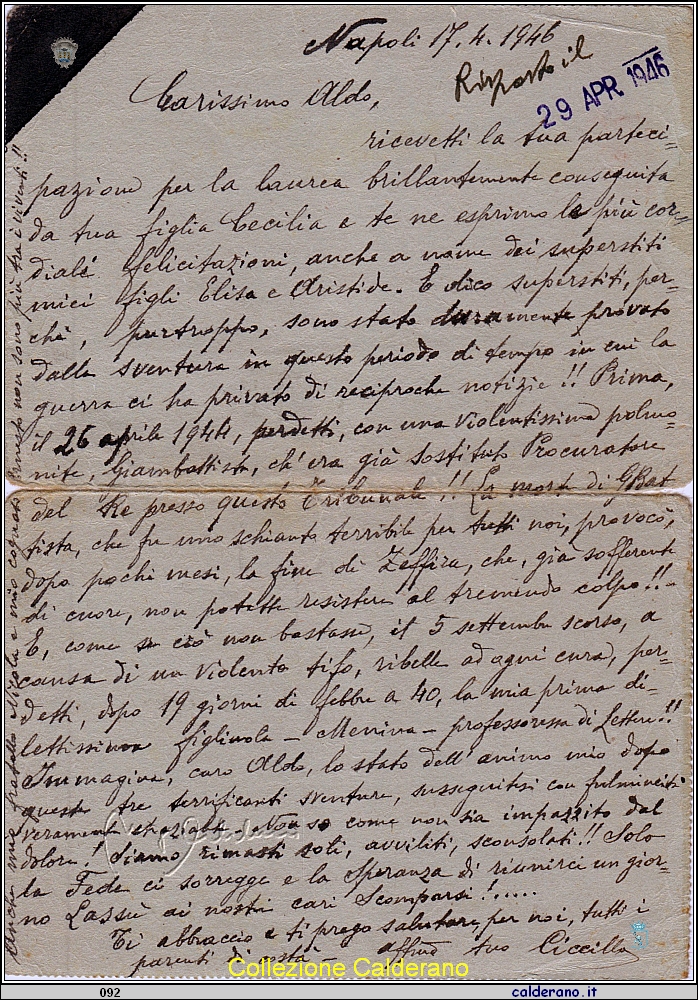 Napoli 17. 4. 1946
Risposto il
29 APR 1946
Carissimo Aldo,
ricevetti la tua parteci-
pazione per la laurea brillantemente conseguita
da tua figlia Cecilia e te ne esprimo le più cor-
diali felicitazioni, anche a nome dei superstiti
miei figli Elisa e Aristide. E dico superstiti, per-
chè, purtroppo, sono stato duramente provato
dalla sventura in questo periodo di tempo in cui la
guerra ci ha privato di reciproche notizie!! Prima,
il 26 aprile 1944, perdetti, con una violentissima polmo-
nite, Giambattista, ch'era già Sostituto Procuratore
del Re presso questo Tribunale!! La morte di GBat
tista, che fu uno schianto terribile per tutti noi, provocò,
dopo pochi mesi, la fine di Zeffira, che, già sofferente
di cuore, non potette resistere al tremendo colpo!!-
E, come se ciò non bastasse, il 5 settembre scorso, a
causa di un violento tifo, ribelle ad ogni cura, per-
detti, dopo 19 giorni di febbre a 40, la mia prima di-
lettissima figliuola - Mennina - professoressa di Lettere!!
Immagina, caro Aldo, lo stato dell'animo mio dopo
queste tre terrificanti sventure, susseguitesi con fulmineità
veramente strazianti. Non so come non sia impazzito dal
dolore! Siamo rimasti soli, avviliti, sconsolati!! Solo
la Fede ci sorregge e la Speranza di riunirci un gior-
no Lassù ai nostri cari Scomparsi!.....
Ti abbraccio e ti prego salutare, per noi, tutti i
parenti di costà - affmo tuo Ciccillo
Anche mio fratello Nicola e mio cognato Ernesto non sono più tra i viventi!!
Collezione Calderano
092
calderano.it